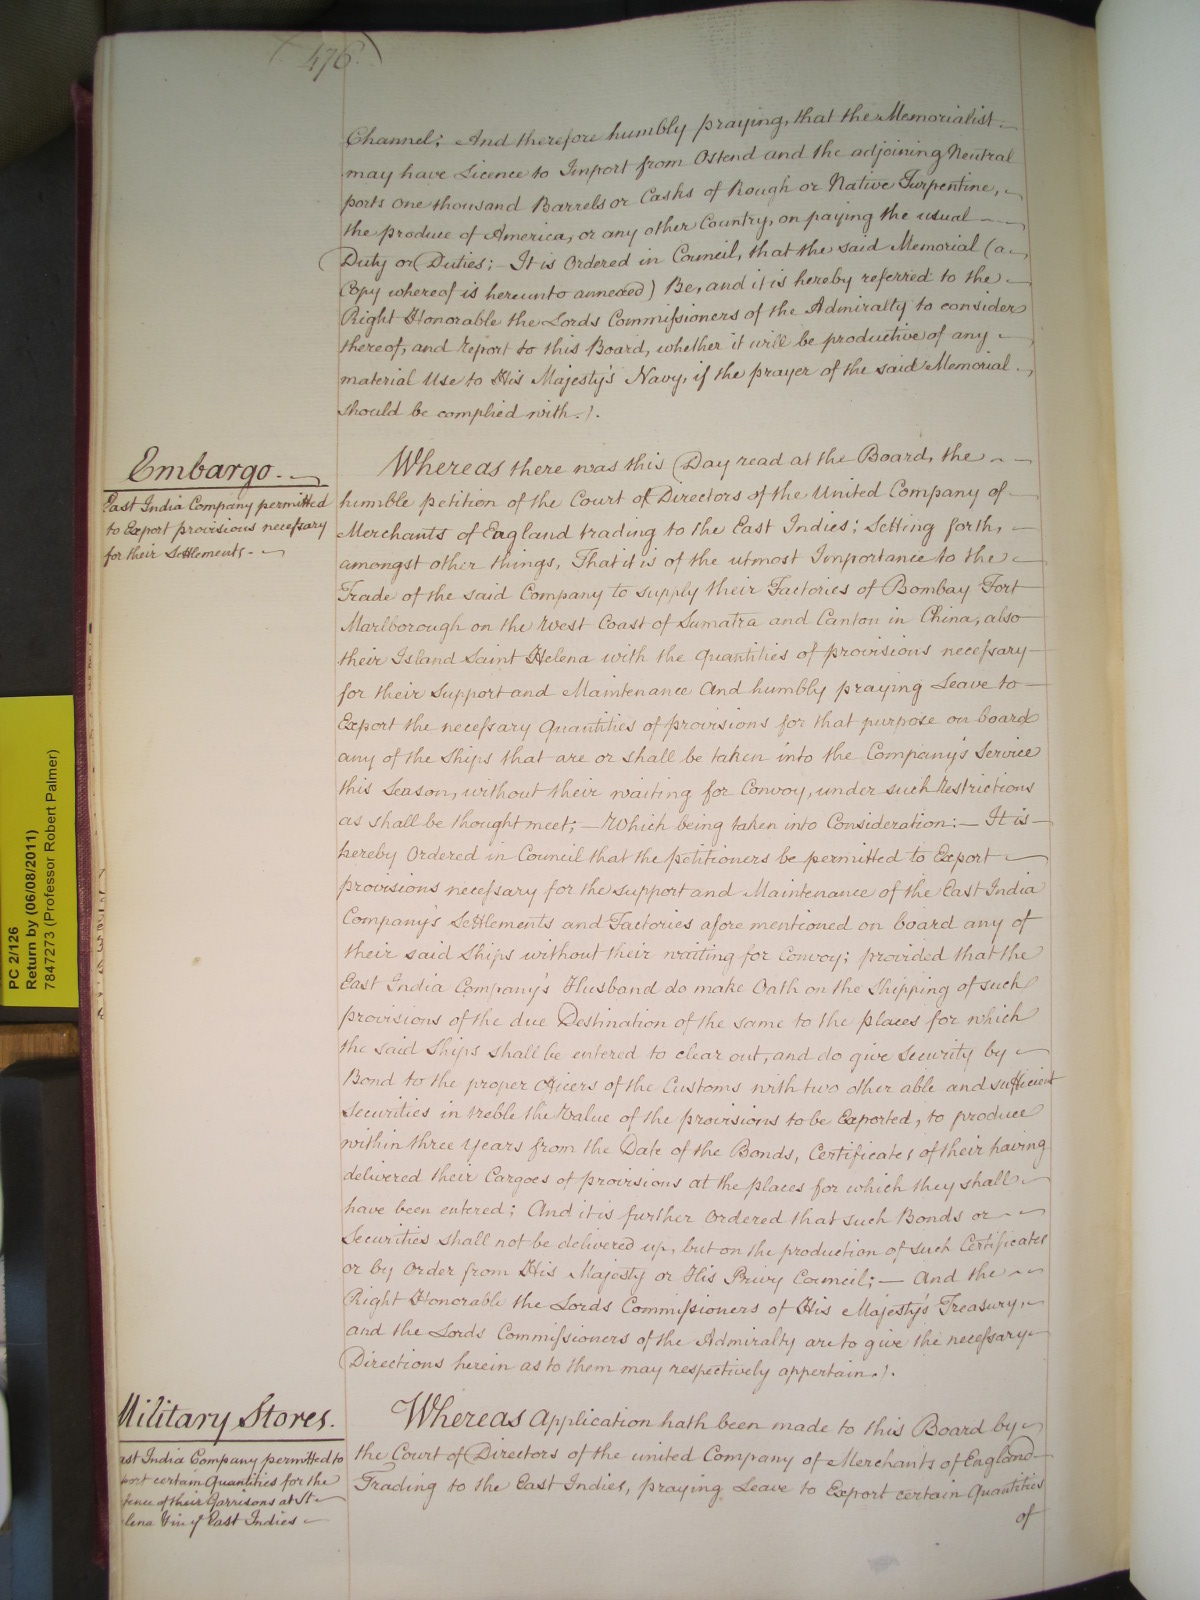 476
Channel; And therefore humbly praying, that the Memorialist
may have Licence to Import from Ostend and the adjoining Neutral
ports one thousand Barrels or Casks of Rough or Native Turpentine,
the produce of America, or any other Country, on paying the usual
Duty or Duties; - It is Ordered in Council, that the said Memorial (a
Copy whereof is hereunto annexed) Be, and it is hereby referred to the
Right Honorable the Lords Commissioners of the Admiralty to consider
thereof, and report to this Board, whether it will be productive of any
material Use to His Majesty's Navy, if the prayer of the said Memorial
should be complied with.
Embargo.
East India Company permitted
to Export provisions necessary
for their Settlements.
Whereas there was this Day read at the Board, the
humble petition of the Court of Directors of the United Company of
Merchants of England trading to the East Indies; Setting forth,
amongst other things, That it is of the utmost Importance to the
Trade of the said Company to supply their Factories of Bombay Fort
Marlborough on the West Coast of Sumatra and Canton in China, also
their Island Saint Helena with the Quantities of provisions necessary
for their Support and Maintenance And humbly praying Leave to
Export the necessary Quantities of provisions for that purpose on board
any of the Ships that are or shall be taken into the Company's Service
this Season, without their waiting for Convoy, under such Restrictions
as shall be thought meet; — Which being taken into Consideration: — It is
hereby Ordered in Council that the petitioners be permitted to Export
provisions necessary for the support and Maintenance of the East India
Company's Settlements and Factories aforementioned on board any of
their said Ships without their waiting for Convoy; provided that the
East India Company's Husband do make Oath on the Shipping of such
provisions of the due Destination of the same to the places for which
the said Ships shall be entered to clear out, and do give Security by
Bond to the proper Officers of the Customs with two other able and sufficient
Securities in treble the Value of the provisions to be Exported, to produce
within three Years from the Date of the Bonds, Certificates of their having
delivered their Cargoes of provisions at the places for which they shall
have been entered; And it is further Ordered that such Bonds or
Securities shall not be delivered up, but on the production of such Certificates
or by Order from His Majesty or His Privy Council; — And the
Right Honorable the Lords Commissioners of His Majesty's Treasury,
and the Lords Commissioners of the Admiralty are to give the necessary
Directions herein as to them may respectively appertain.
Military Stores.
ast India Company permitted to
port certain Quantities for the
fence of their Garrisons at St
lena & in ye East Indies
Whereas Application hath been made to this Board by
the Court of Directors of the united Company of Merchants of England
Trading to the East Indies, praying Leave to Export certain Quantities
of
PC 2/126
Return by (06/08/2011)
7847273 (Professor Robert Palmer)